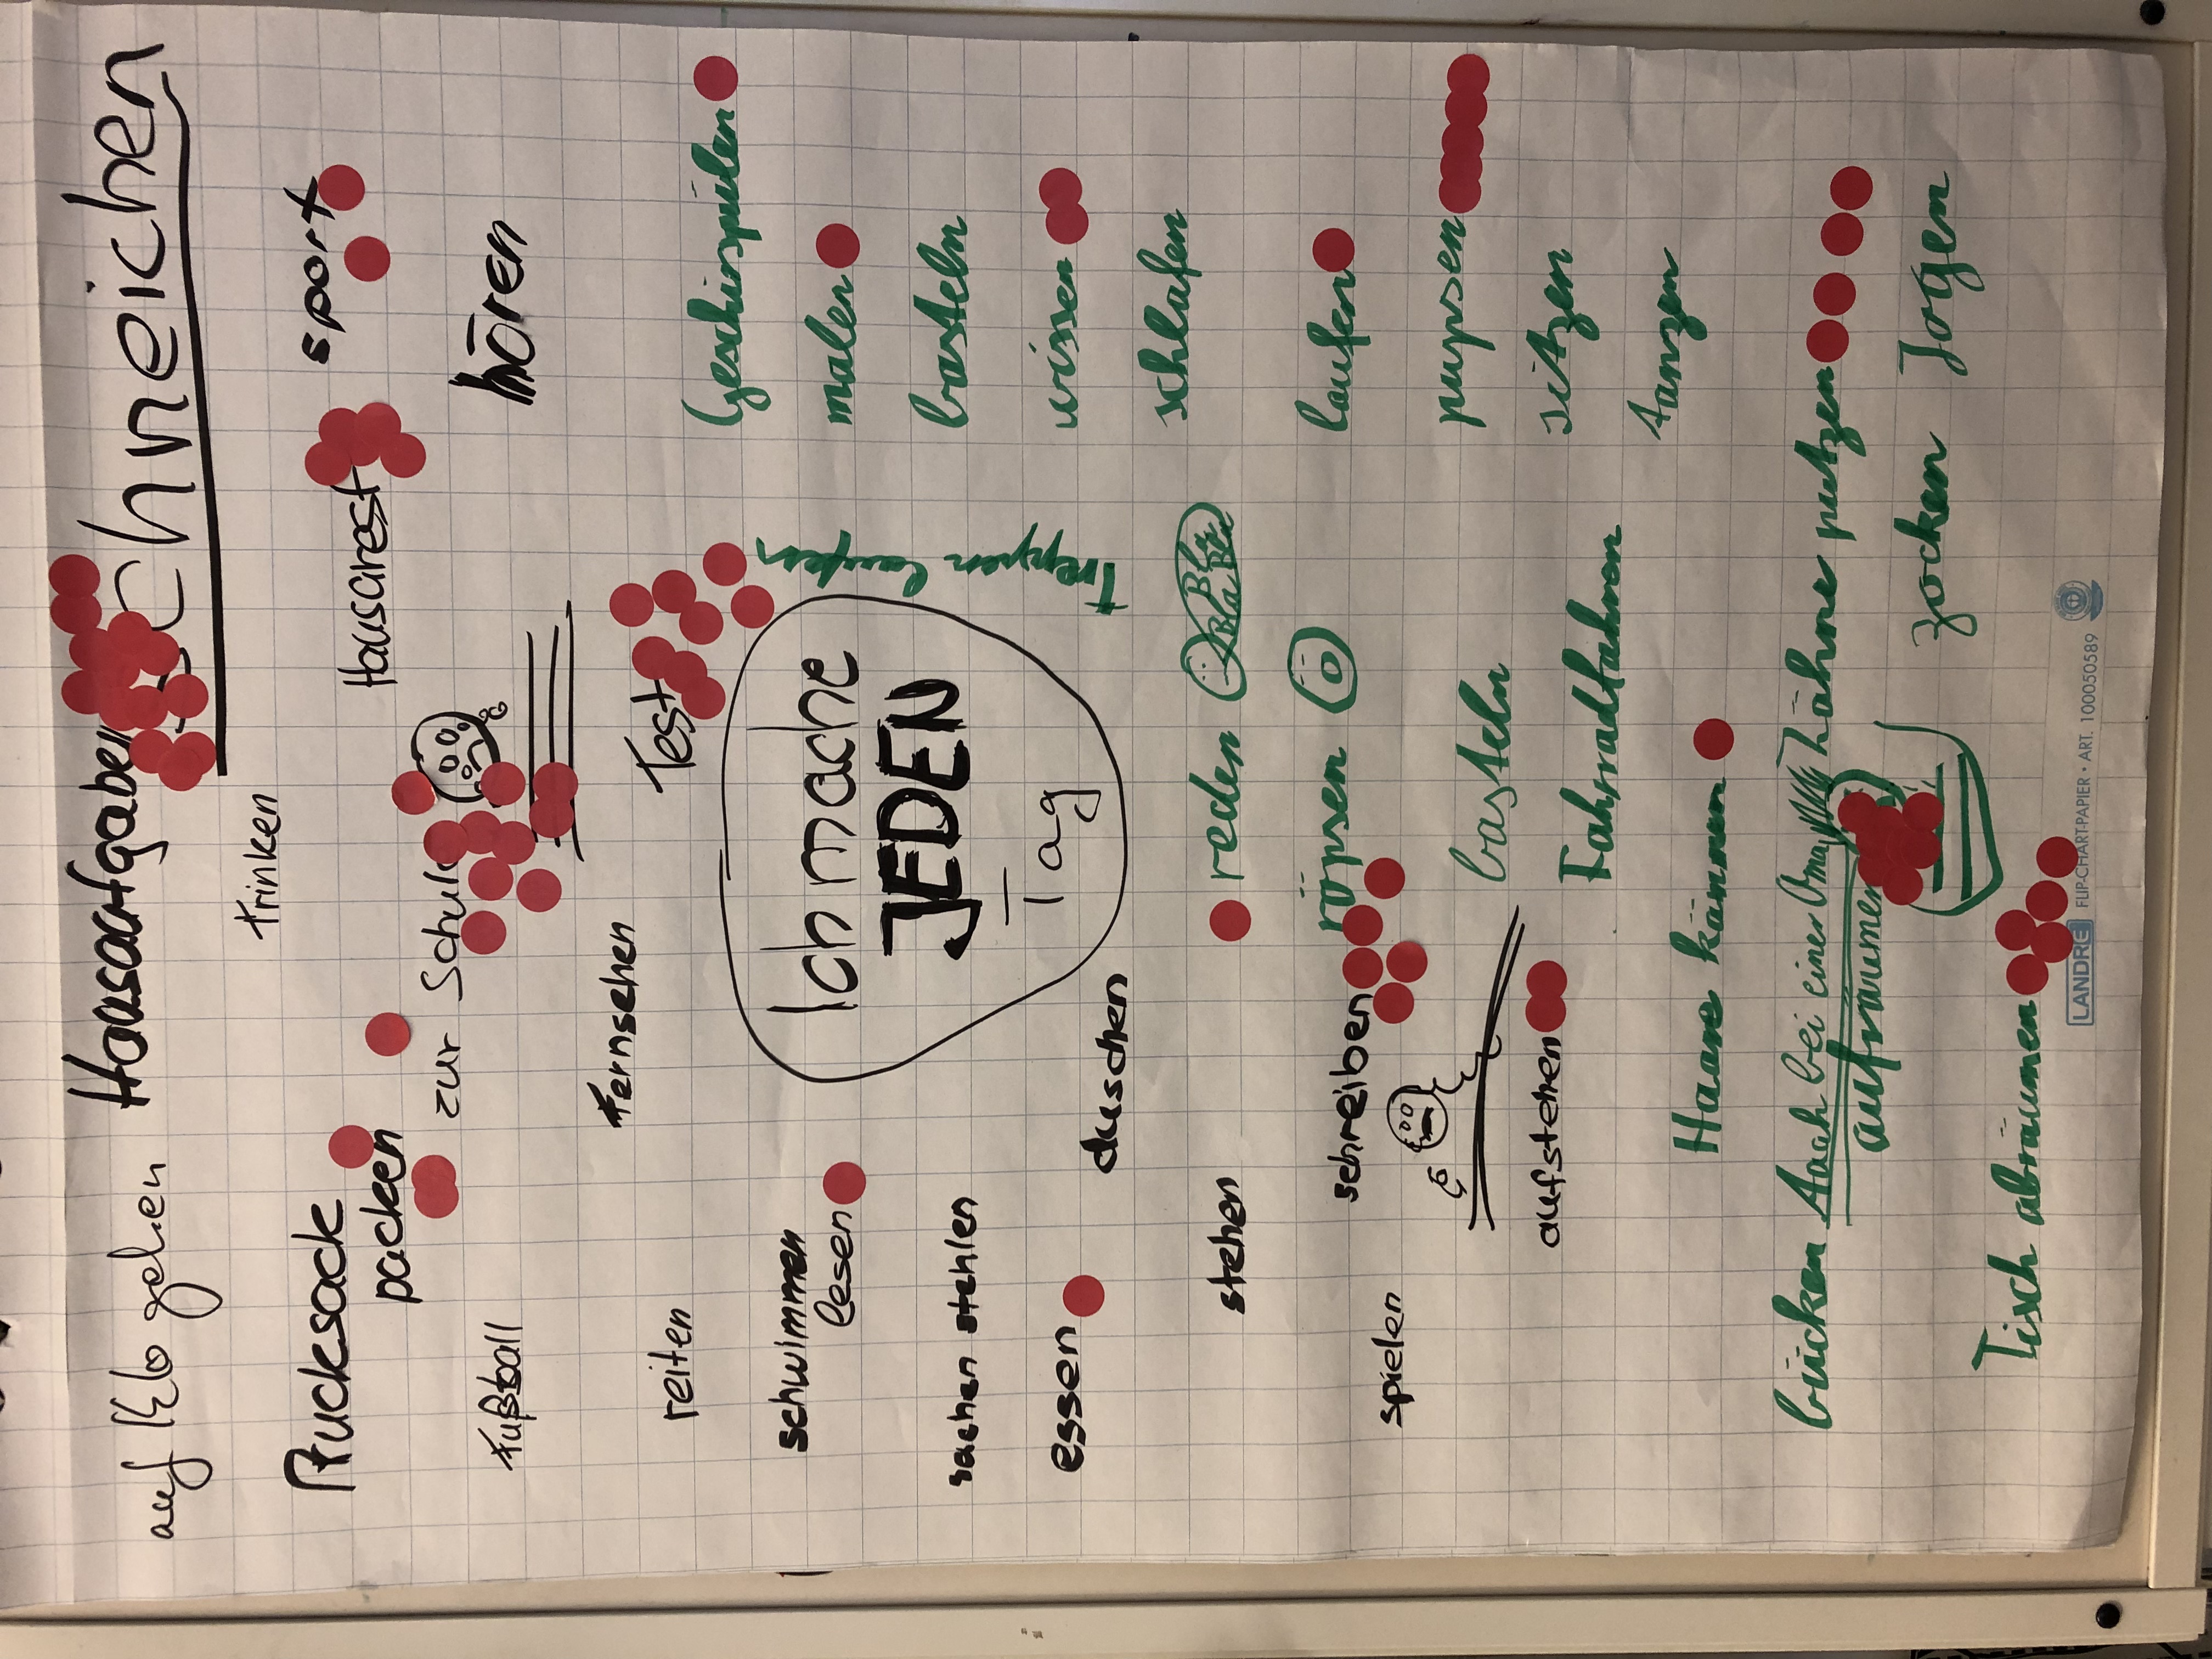 auf Klo gehen Hausaufgaben Schneichen
trinken
Rucksack
packen
Hausarest
sport
zur Schule
Fußball
hören
Fernsehen
Test
reiten
Geschirspülen
schwimmen
lesen
Ich mache
JEDEN
Tag
treppen laufen
malen
sachen stehlen
basteln
essen
duschen
wissen
schlafen
stehen
reden
Bla Bla
Bla Bla
schreiben
röpsen
laufen
spielen
pupsen
basteln
aufstehen
sitzen
Fahrradfahren
tanzen
Haare kämmen
bücken Aach bei einer Oma
aufräumen
Zähne putzen
zocken Jogen
Tisch abräumen
LANDRÉ FLIP-CHART-PAPIER • ART. 100050589